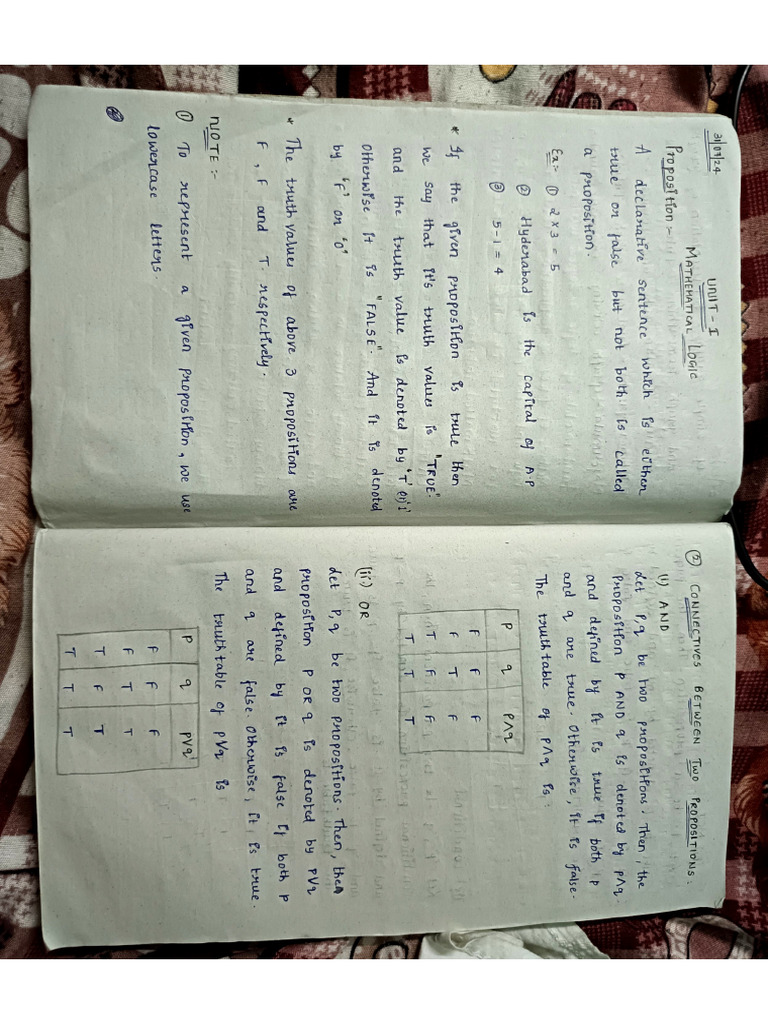 31/09/24
UNIT-I
MATHEMATICAL LOGIC
Proposition :-
A declarative sentence which is either
true or false but not both is called
a proposition.
Ex:- ① 2 x 3 = 5
② Hyderabad is the capital of A.P
③ 5 - 1 = 4
* If the given proposition is true then
we say that it's truth values is "TRUE".
and the truth value is denoted by 'T' (or) '1'
Otherwise it is "FALSE". And it is denoted
by 'F' or '0'
* The truth values of above 3 propositions are
F, F and T. respectively.
NOTE :-
① To represent a given proposition, we use
lowercase letters.
② CONNECTIVES BETWEEN TWO PROPOSITIONS:
(i) AND
Let P,q be two propositions. Then, the
Proposition P AND q is denoted by p∧q.
and defined by it is true if both p
and q are true. Otherwise, it is false.
The truth table of p∧q is.
P q p∧q
F F F
F T F
T F F
T T T
(ii) OR
Let P,q be two propositions. Then, then
proposition P OR q is denoted by p∨q
and defined by it is false if both p
and q are false. Otherwise, it is true.
The truth table of p∨q is
P q p∨q
F F F
F T T
T F T
T T T